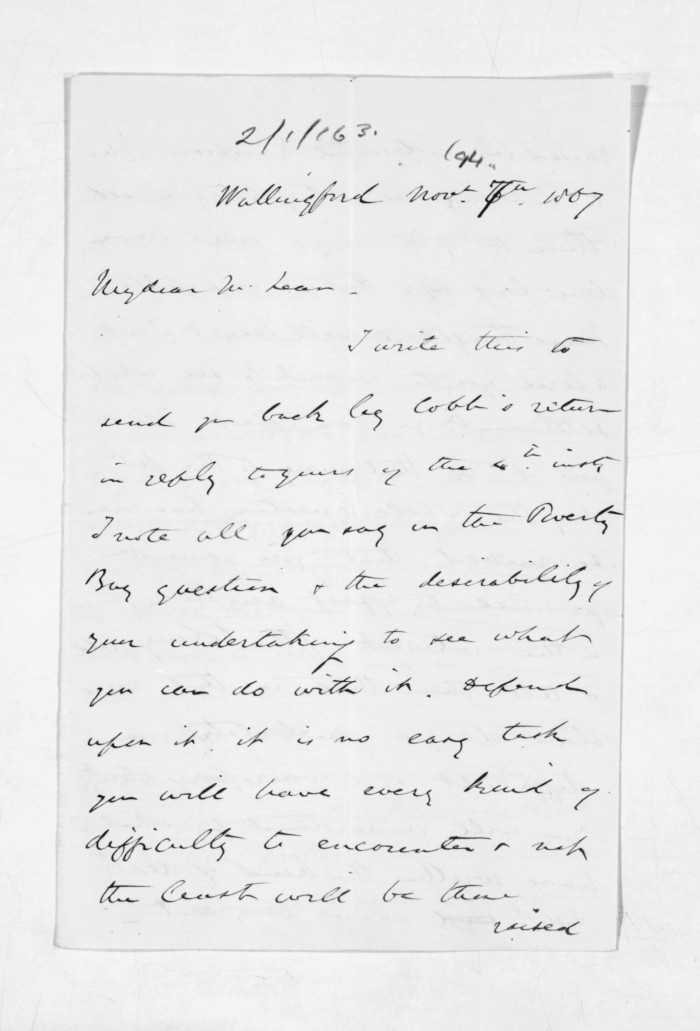 2/1/163.
194.
Wallingford Novr. 7th. 1867
My dear Mc Lean -
I write this to
send you back by Cobb's return
in reply to yours of the 4th. inst,
I note all you say in the Poverty
Bay question & the desirability of
your undertaking to see what
you can do with it. Depend
upon it, it is no easy task
you will have every kind of
difficulty to encounter & not
the least will be those
raised